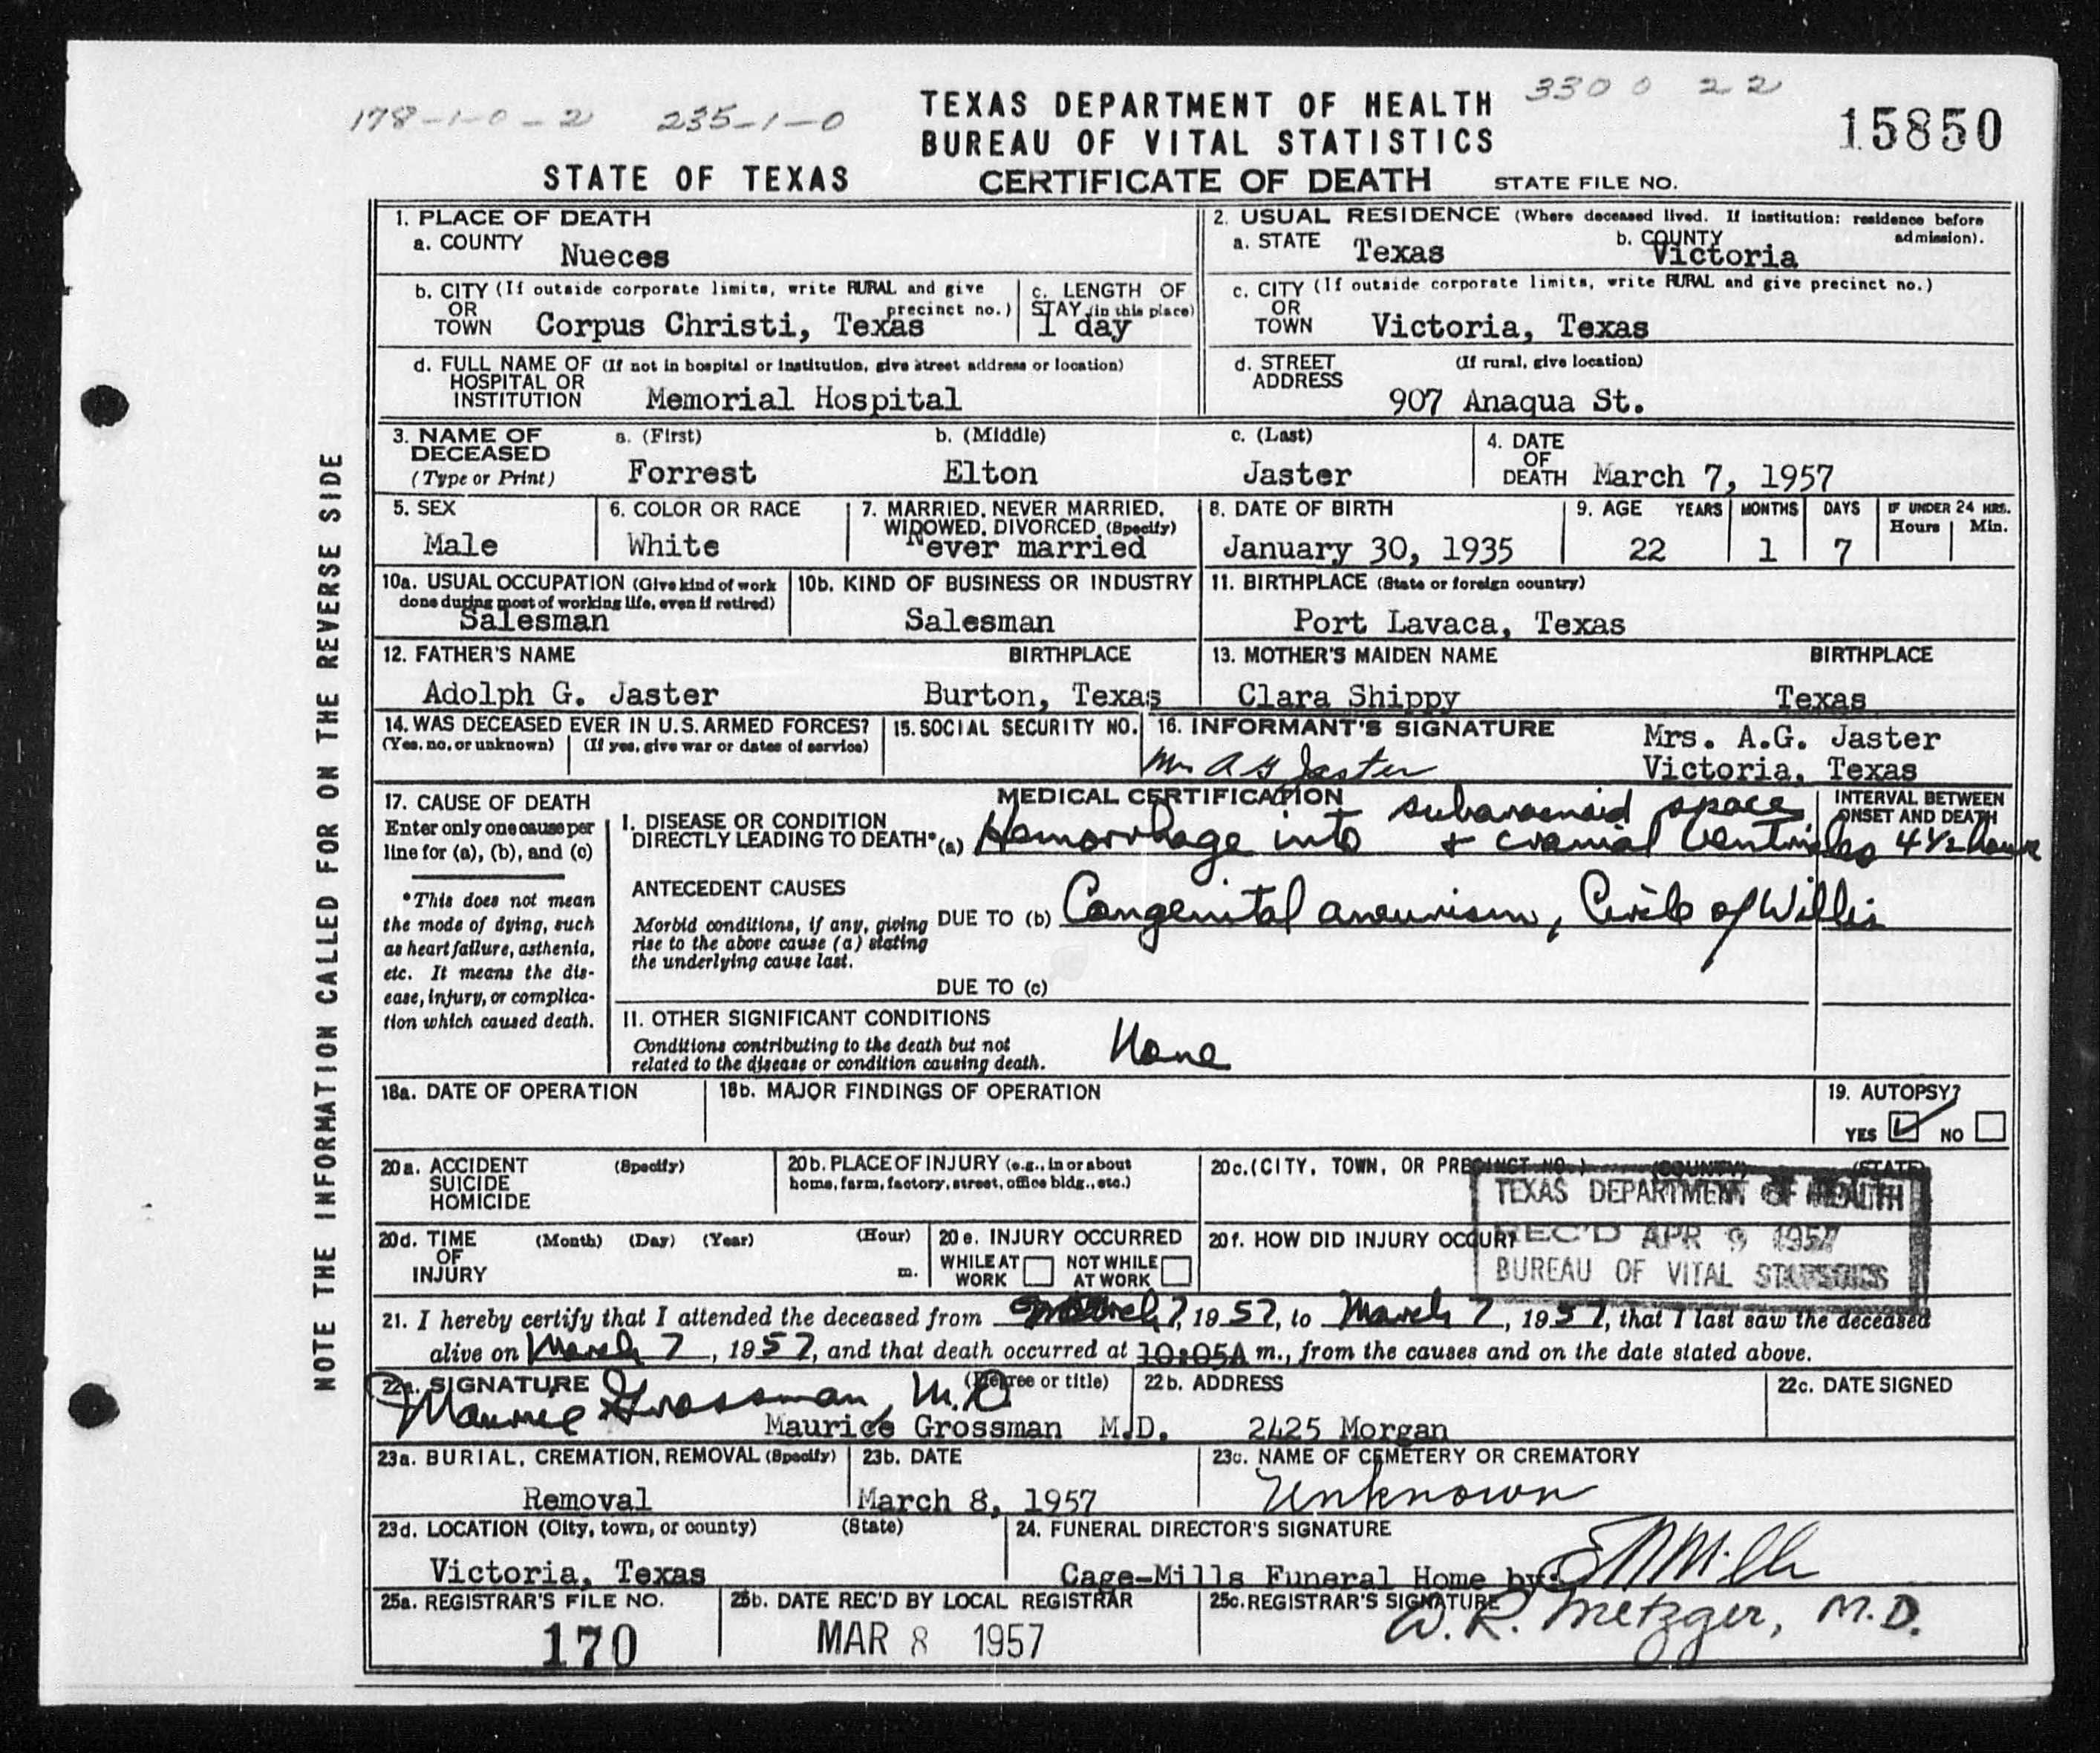 178-1-0-2 235-1-0 3300 22
TEXAS DEPARTMENT OF HEALTH
BUREAU OF VITAL STATISTICS
15850
STATE OF TEXAS CERTIFICATE OF DEATH STATE FILE NO.
NOTE THE INFORMATION CALLED FOR ON THE REVERSE SIDE
1. PLACE OF DEATH
a. COUNTY Nueces
2. USUAL RESIDENCE (Where deceased lived. If institution: residence before admission).
a. STATE Texas b. COUNTY Victoria
b. CITY (If outside corporate limits, write RURAL and give precinct no.)
OR TOWN Corpus Christi, Texas
c. LENGTH OF STAY (in this place) 1 day
c. CITY (If outside corporate limits, write RURAL and give precinct no.)
OR TOWN Victoria, Texas
d. FULL NAME OF (If not in hospital or institution, give street address or location)
HOSPITAL OR INSTITUTION Memorial Hospital
d. STREET ADDRESS (If rural, give location)
907 Anaqua St.
3. NAME OF DECEASED (Type or Print)
a. (First) b. (Middle) c. (Last)
Forrest Elton Jaster
4. DATE OF DEATH March 7, 1957
5. SEX Male
6. COLOR OR RACE White
7. MARRIED, NEVER MARRIED, WIDOWED, DIVORCED (Specify)
Never married
8. DATE OF BIRTH January 30, 1935
9. AGE YEARS MONTHS DAYS IF UNDER 24 HRS. Hours Min.
22 1 7
10a. USUAL OCCUPATION (Give kind of work done during most of working life, even if retired)
Salesman
10b. KIND OF BUSINESS OR INDUSTRY
Salesman
11. BIRTHPLACE (State or foreign country)
Port Lavaca, Texas
12. FATHER'S NAME BIRTHPLACE
Adolph G. Jaster Burton, Texas
13. MOTHER'S MAIDEN NAME BIRTHPLACE
Clara Shippy Texas
14. WAS DECEASED EVER IN U.S. ARMED FORCES?
(Yes, no, or unknown) (If yes, give war or dates of service)
15. SOCIAL SECURITY NO.
16. INFORMANT'S SIGNATURE Mrs. A.G. Jaster
Mrs A G Jaster Victoria, Texas
MEDICAL CERTIFICATION
17. CAUSE OF DEATH
Enter only one cause per line for (a), (b), and (c)
*This does not mean the mode of dying, such as heart failure, asthenia, etc. It means the disease, injury, or complication which caused death.
I. DISEASE OR CONDITION DIRECTLY LEADING TO DEATH* (a) Hemorrhage into subaracnoid space & cranial ventricles
INTERVAL BETWEEN ONSET AND DEATH
4 1/2 hours
ANTECEDENT CAUSES
Morbid conditions, if any, giving rise to the above cause (a) stating the underlying cause last.
DUE TO (b) Congenital aneurism, Circle of Willis
DUE TO (c)
II. OTHER SIGNIFICANT CONDITIONS
Conditions contributing to the death but not related to the disease or condition causing death.
None
18a. DATE OF OPERATION
18b. MAJOR FINDINGS OF OPERATION
19. AUTOPSY?
YES NO
20a. ACCIDENT SUICIDE HOMICIDE (Specify)
20b. PLACE OF INJURY (e.g., in or about home, farm, factory, street, office bldg., etc.)
20c. (CITY, TOWN, OR PRECINCT NO.) (COUNTY) (STATE)
TEXAS DEPARTMENT OF HEALTH
REC'D APR 9 1957
BUREAU OF VITAL STATISTICS
20d. TIME OF INJURY (Month) (Day) (Year) (Hour) m.
20e. INJURY OCCURRED
WHILE AT WORK NOT WHILE AT WORK
20f. HOW DID INJURY OCCUR?
21. I hereby certify that I attended the deceased from March 7, 1957, to March 7, 1957, that I last saw the deceased
alive on March 7, 1957, and that death occurred at 10:05A m., from the causes and on the date stated above.
22a. SIGNATURE (Degree or title)
Maurice Grossman, M.D.
Maurice Grossman M.D.
22b. ADDRESS
2425 Morgan
22c. DATE SIGNED
23a. BURIAL, CREMATION, REMOVAL (Specify)
Removal
23b. DATE
March 8, 1957
23c. NAME OF CEMETERY OR CREMATORY
Unknown
23d. LOCATION (City, town, or county) (State)
Victoria, Texas
24. FUNERAL DIRECTOR'S SIGNATURE
Cage-Mills Funeral Home by:
25a. REGISTRAR'S FILE NO.
170
25b. DATE REC'D BY LOCAL REGISTRAR
MAR 8 1957
25c. REGISTRAR'S SIGNATURE
W. R. Metzger, M.D.